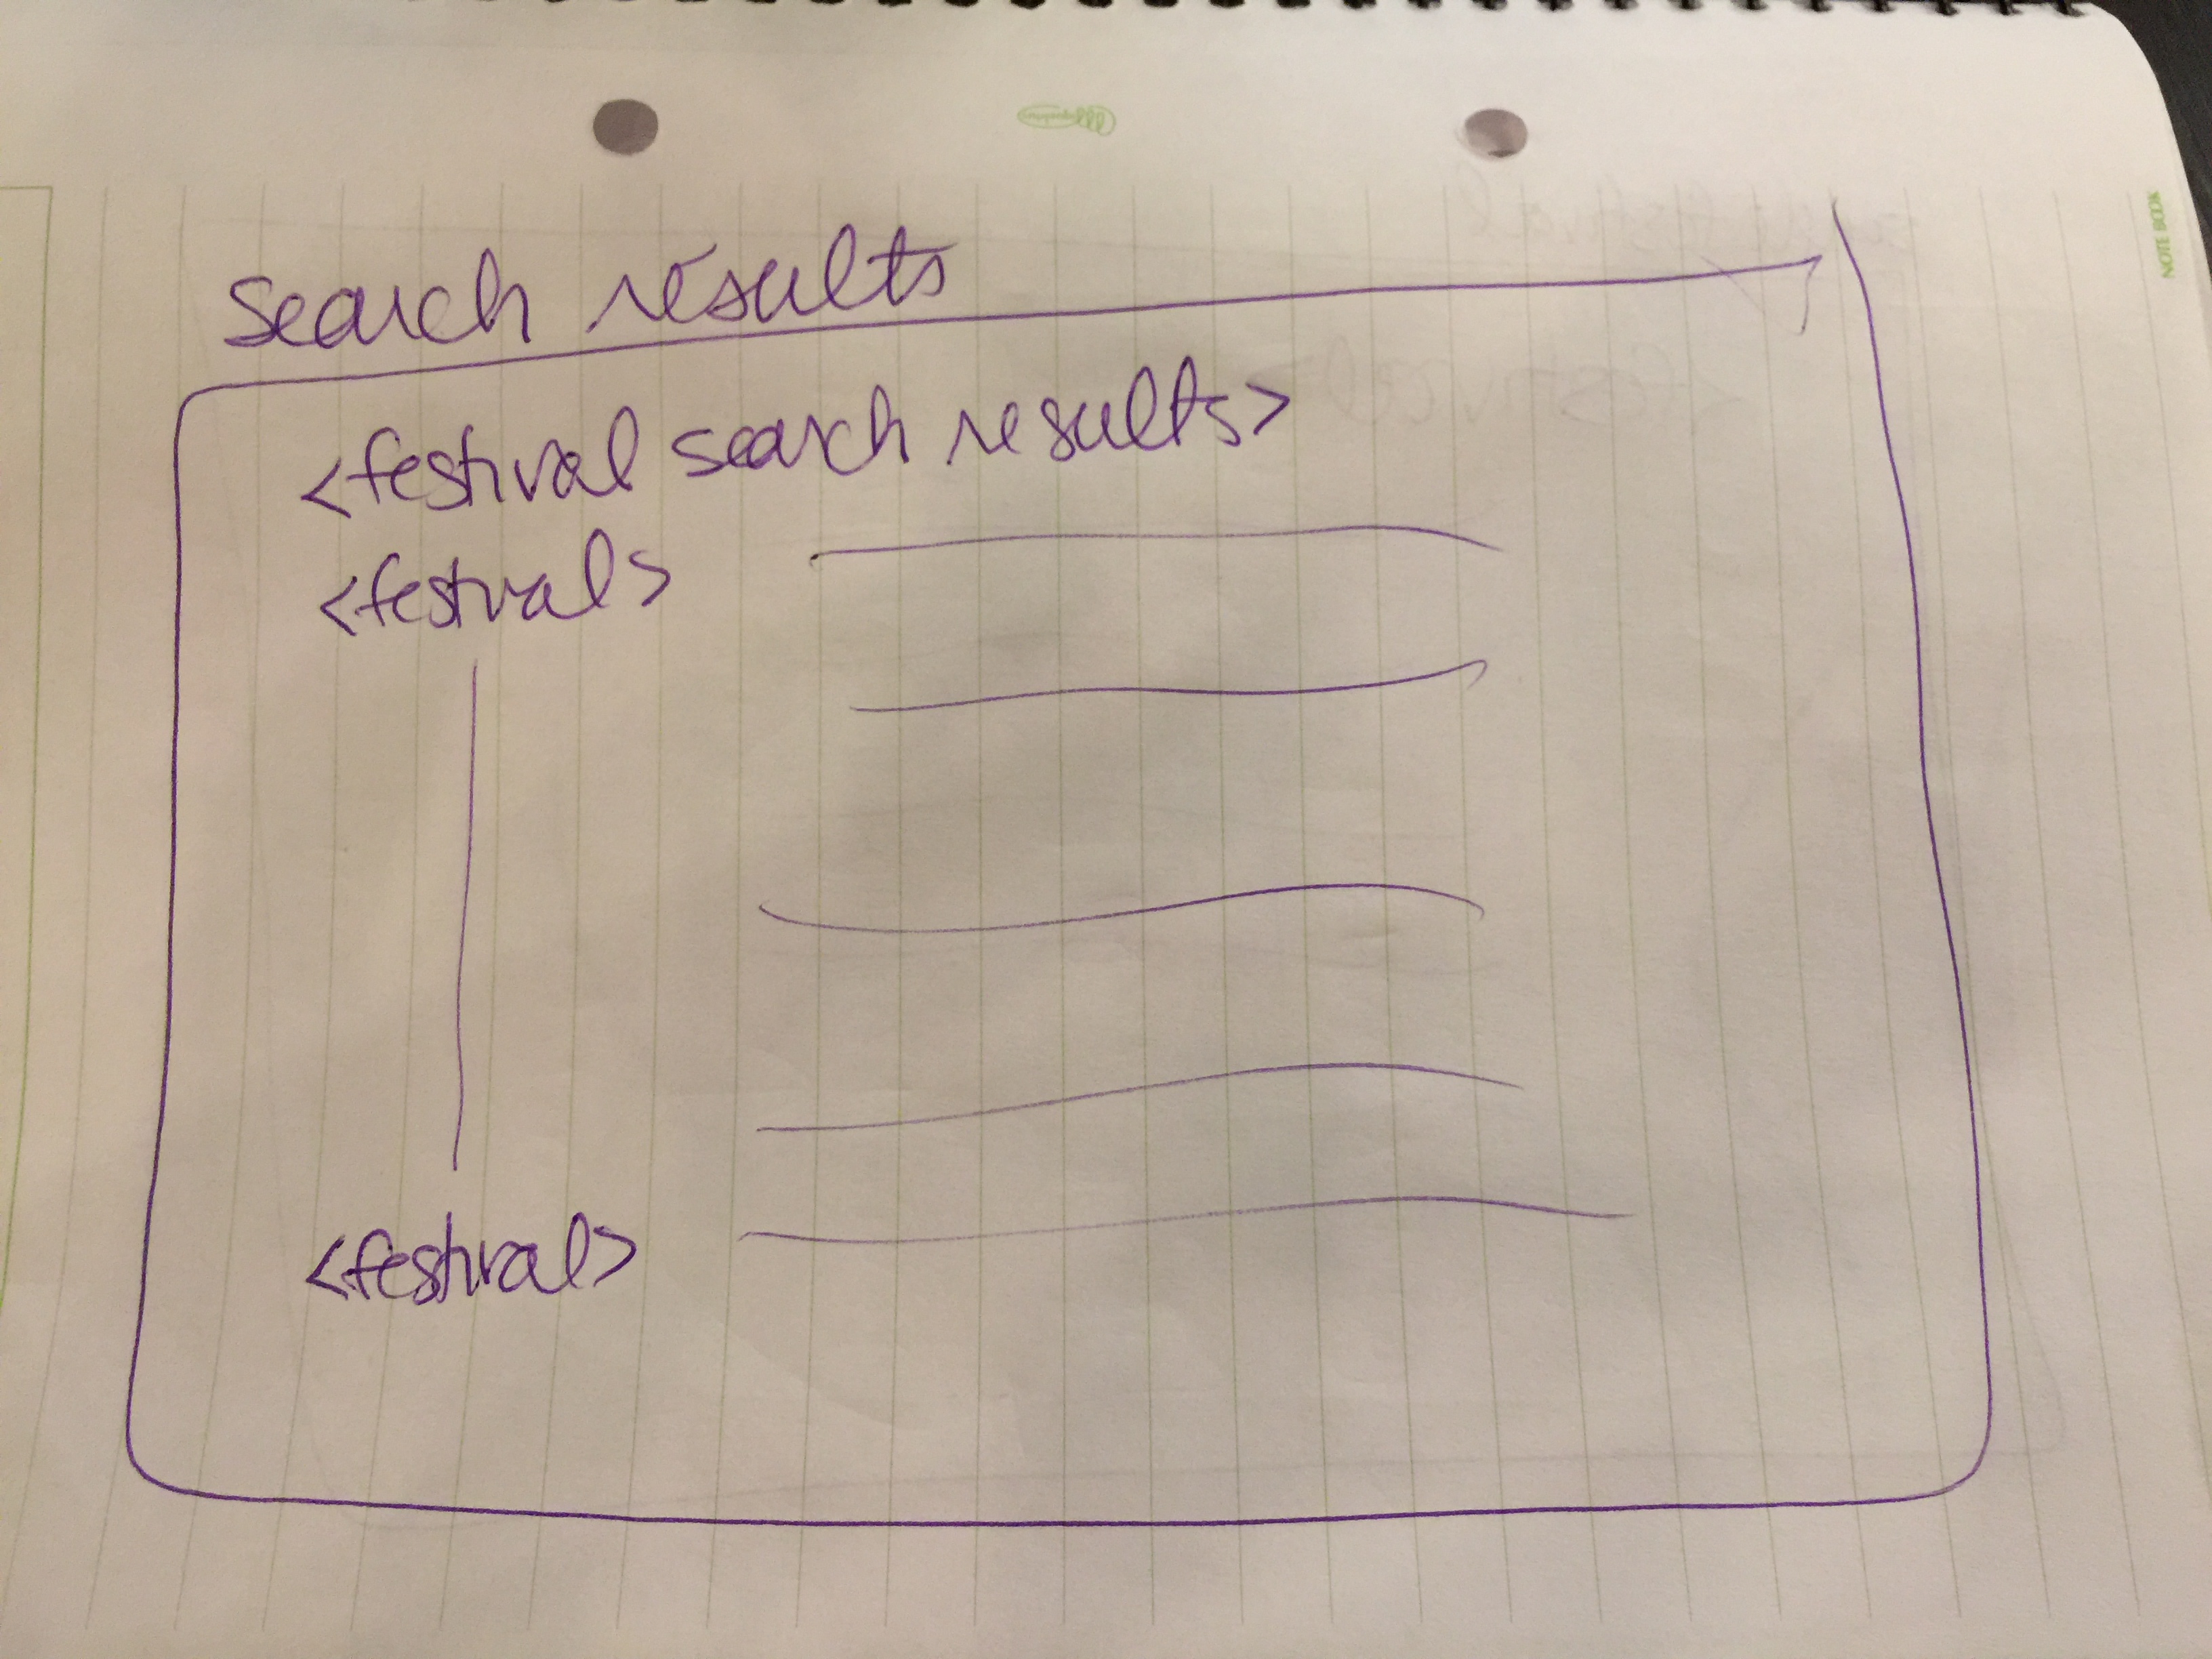 search results
<festival search results>
<festival>
<festival>
NOTE BOOK